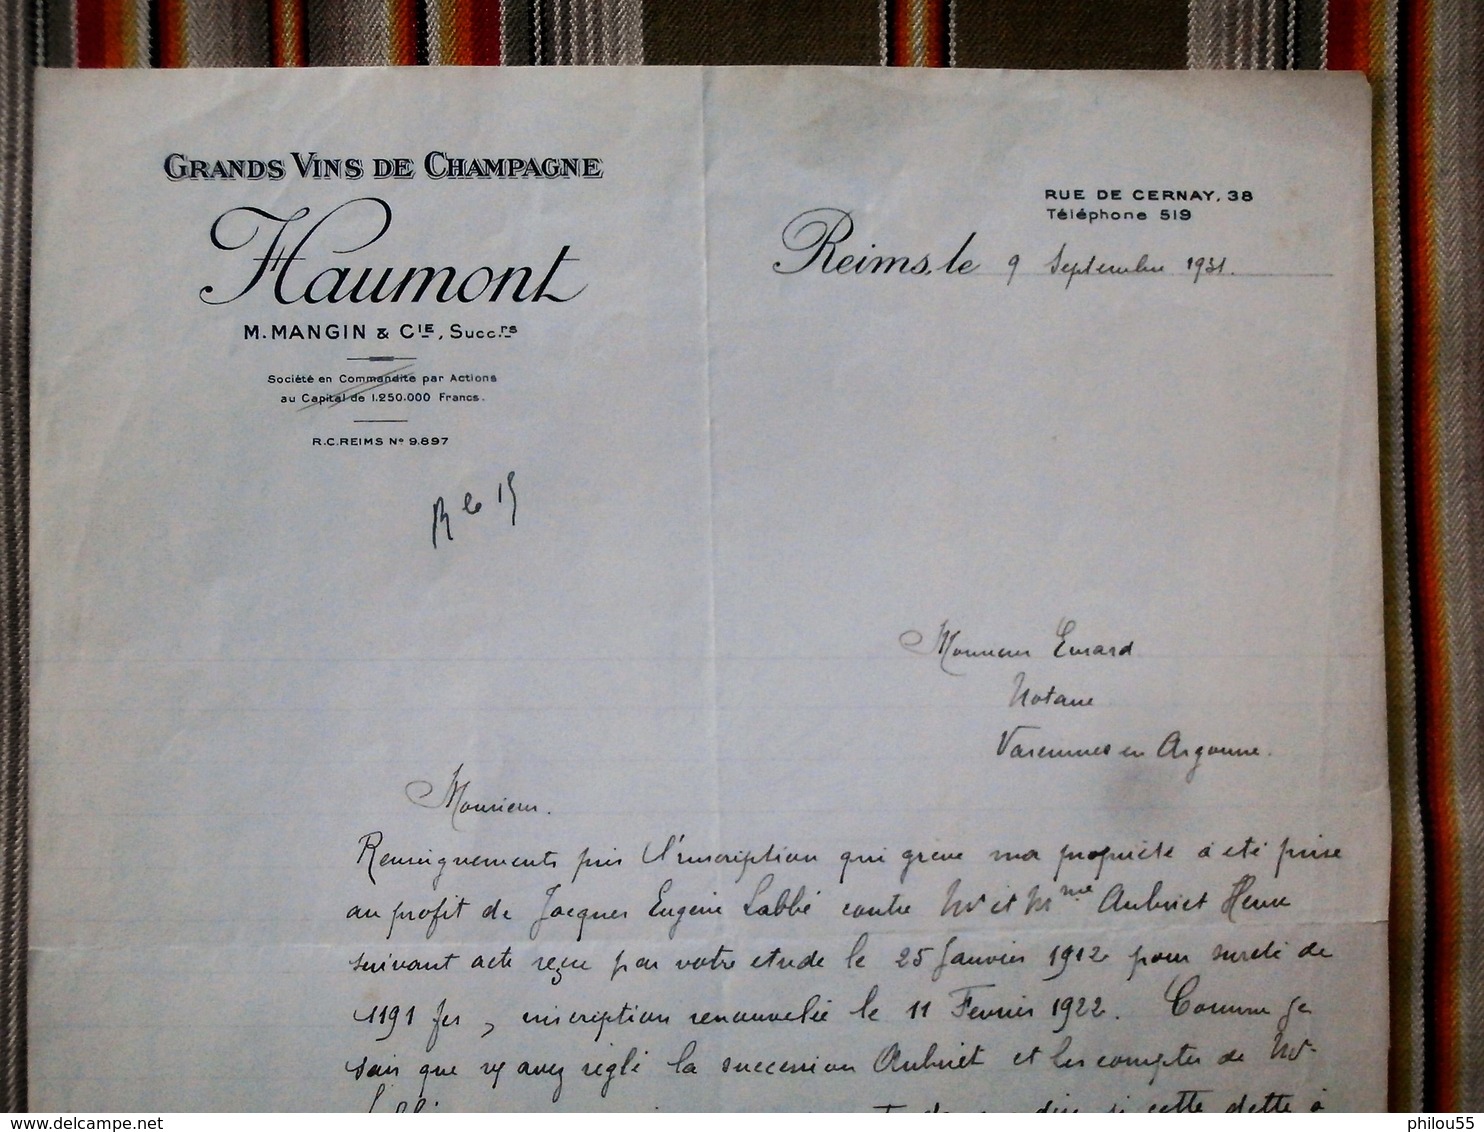 GRANDS VINS DE CHAMPAGNE
Haumont
M. MANGIN & CIE, Succ.rs
Société en Commandite par Actions
au Capital de 1.250.000 Francs.
R.C. REIMS No 9.897
RUE DE CERNAY, 38
Téléphone 519
Reims, le 9 Septembre 1931.
R le 15
Monsieur Emard
Notaire
Varennes en Argonne.
Monsieur.
Renseignements pris l'inscription qui grève ma propriété a été prise
au profit de Jacques Eugène Labbé contre Mr et Mme Aubriet Henri
suivant acte reçu par votre etude le 25 Janvier 1912 pour sureté de
1191 frs, inscription renouvelée le 11 Fevrier 1922. Comme je
sais que vs avez réglé la succession Aubriet et les comptes de Mr
Labbé si cette dette a
delcampe.net
philou55